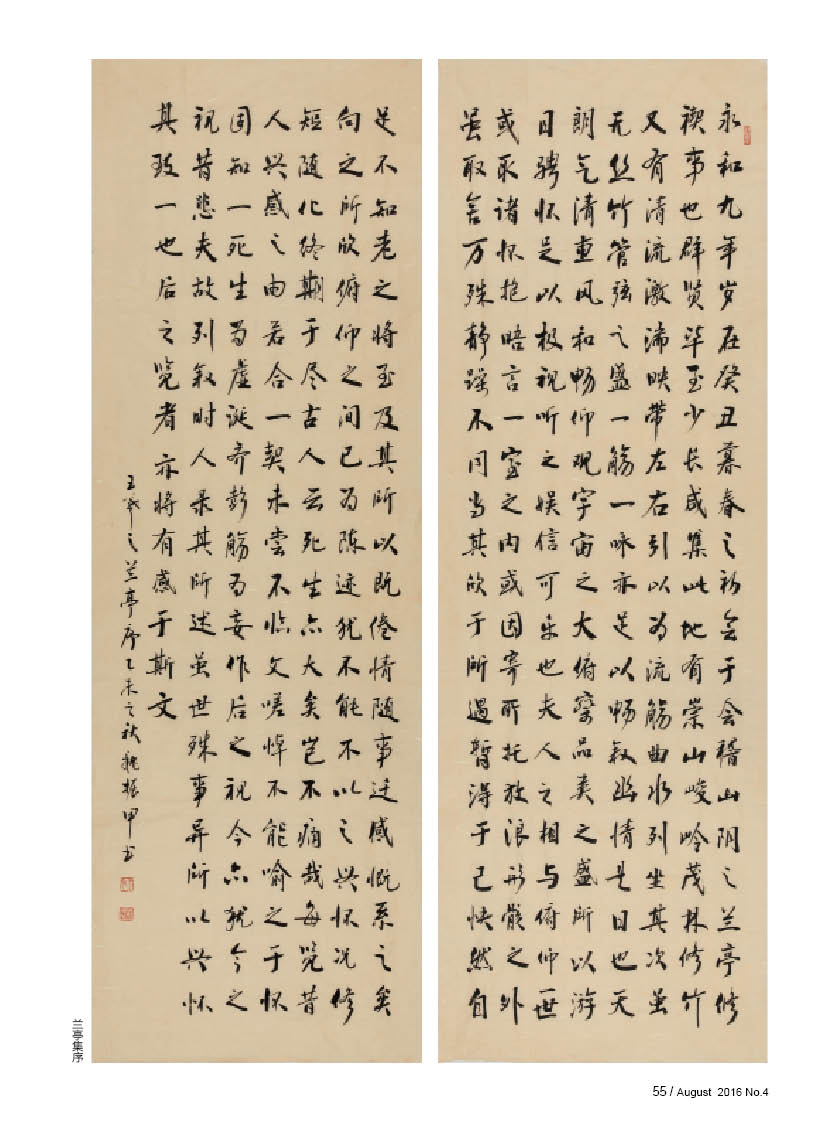 永和九年岁在癸丑暮春之初会于会稽山阴之兰亭修
禊事也群贤毕至少长咸集此地有崇山峻岭茂林修竹
又有清流激湍映带左右引以为流觞曲水列坐其次虽
无丝竹管弦之盛一觞一咏亦足以畅叙幽情是日也天
朗气清惠风和畅仰观宇宙之大俯察品类之盛所以游
目骋怀足以极视听之娱信可乐也夫人之相与俯仰一世
或取诸怀抱晤言一室之内或因寄所托放浪形骸之外
虽取舍万殊静躁不同当其欣于所遇暂得于己快然自
足不知老之将至及其所以既倦情随事迁感慨系之矣
向之所欣俯仰之间已为陈迹犹不能不以之兴怀况修
短随化终期于尽古人云死生亦大矣岂不痛哉每览昔
人兴感之由若合一契未尝不临文嗟悼不能喻之于怀
固知一死生为虚诞齐彭觞为妄作后之视今亦犹今之
视昔悲夫故列叙时人录其所述虽世殊事异所以兴怀
其致一也后之览者亦将有感于斯文
王羲之兰亭序乙未之秋姚振甲书
兰亭集序
55 / August 2016 No.4